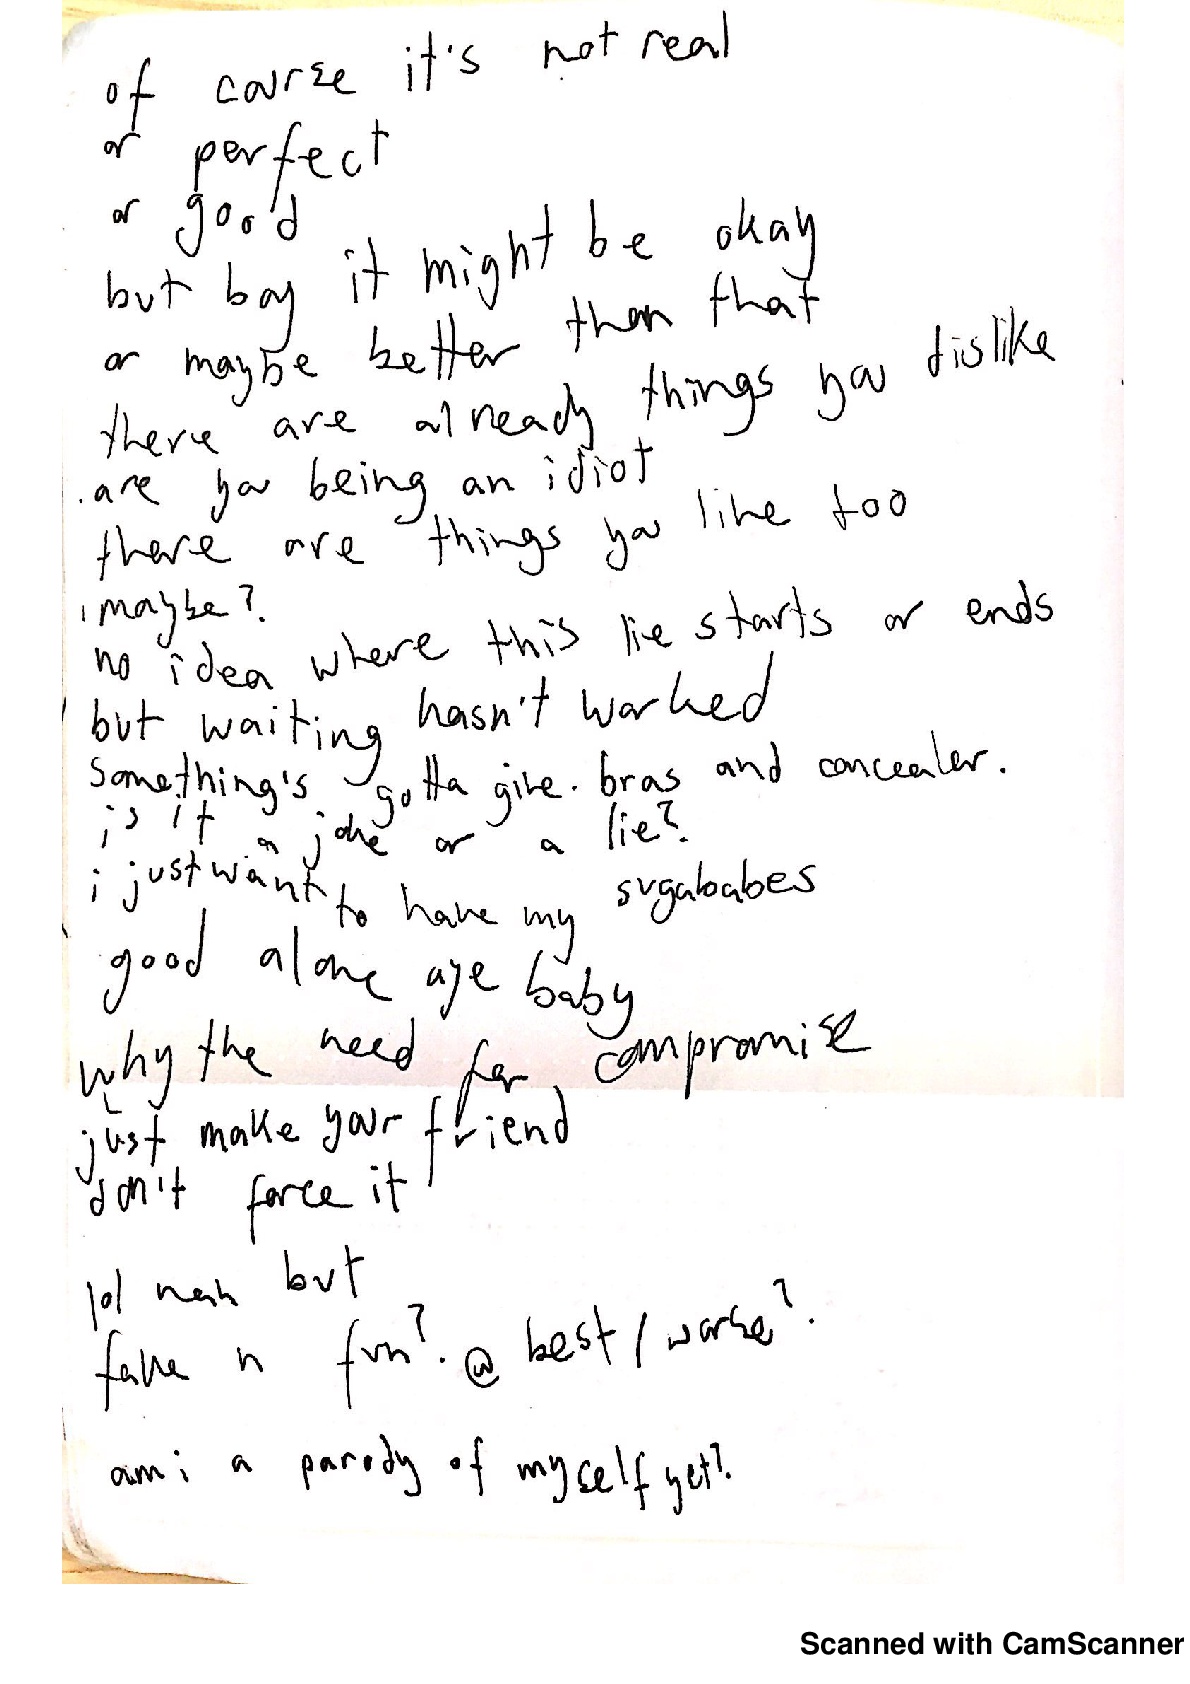 of course it's not real
or perfect
or good
but boy it might be okay
or maybe better than that
there are already things you dislike
are you being an idiot
there are things you like too
maybe?
no idea where this lie starts or ends
but waiting hasn't worked
something's gotta give. bras and concealer.
is it a joke or a lie?
i just want to have my sugababes
good alone aye baby
why the need for compromise
just make your friend
don't force it
lol nah but
fake n fun? @ best / worse?
am i a parody of myself yet?
Scanned with CamScanner